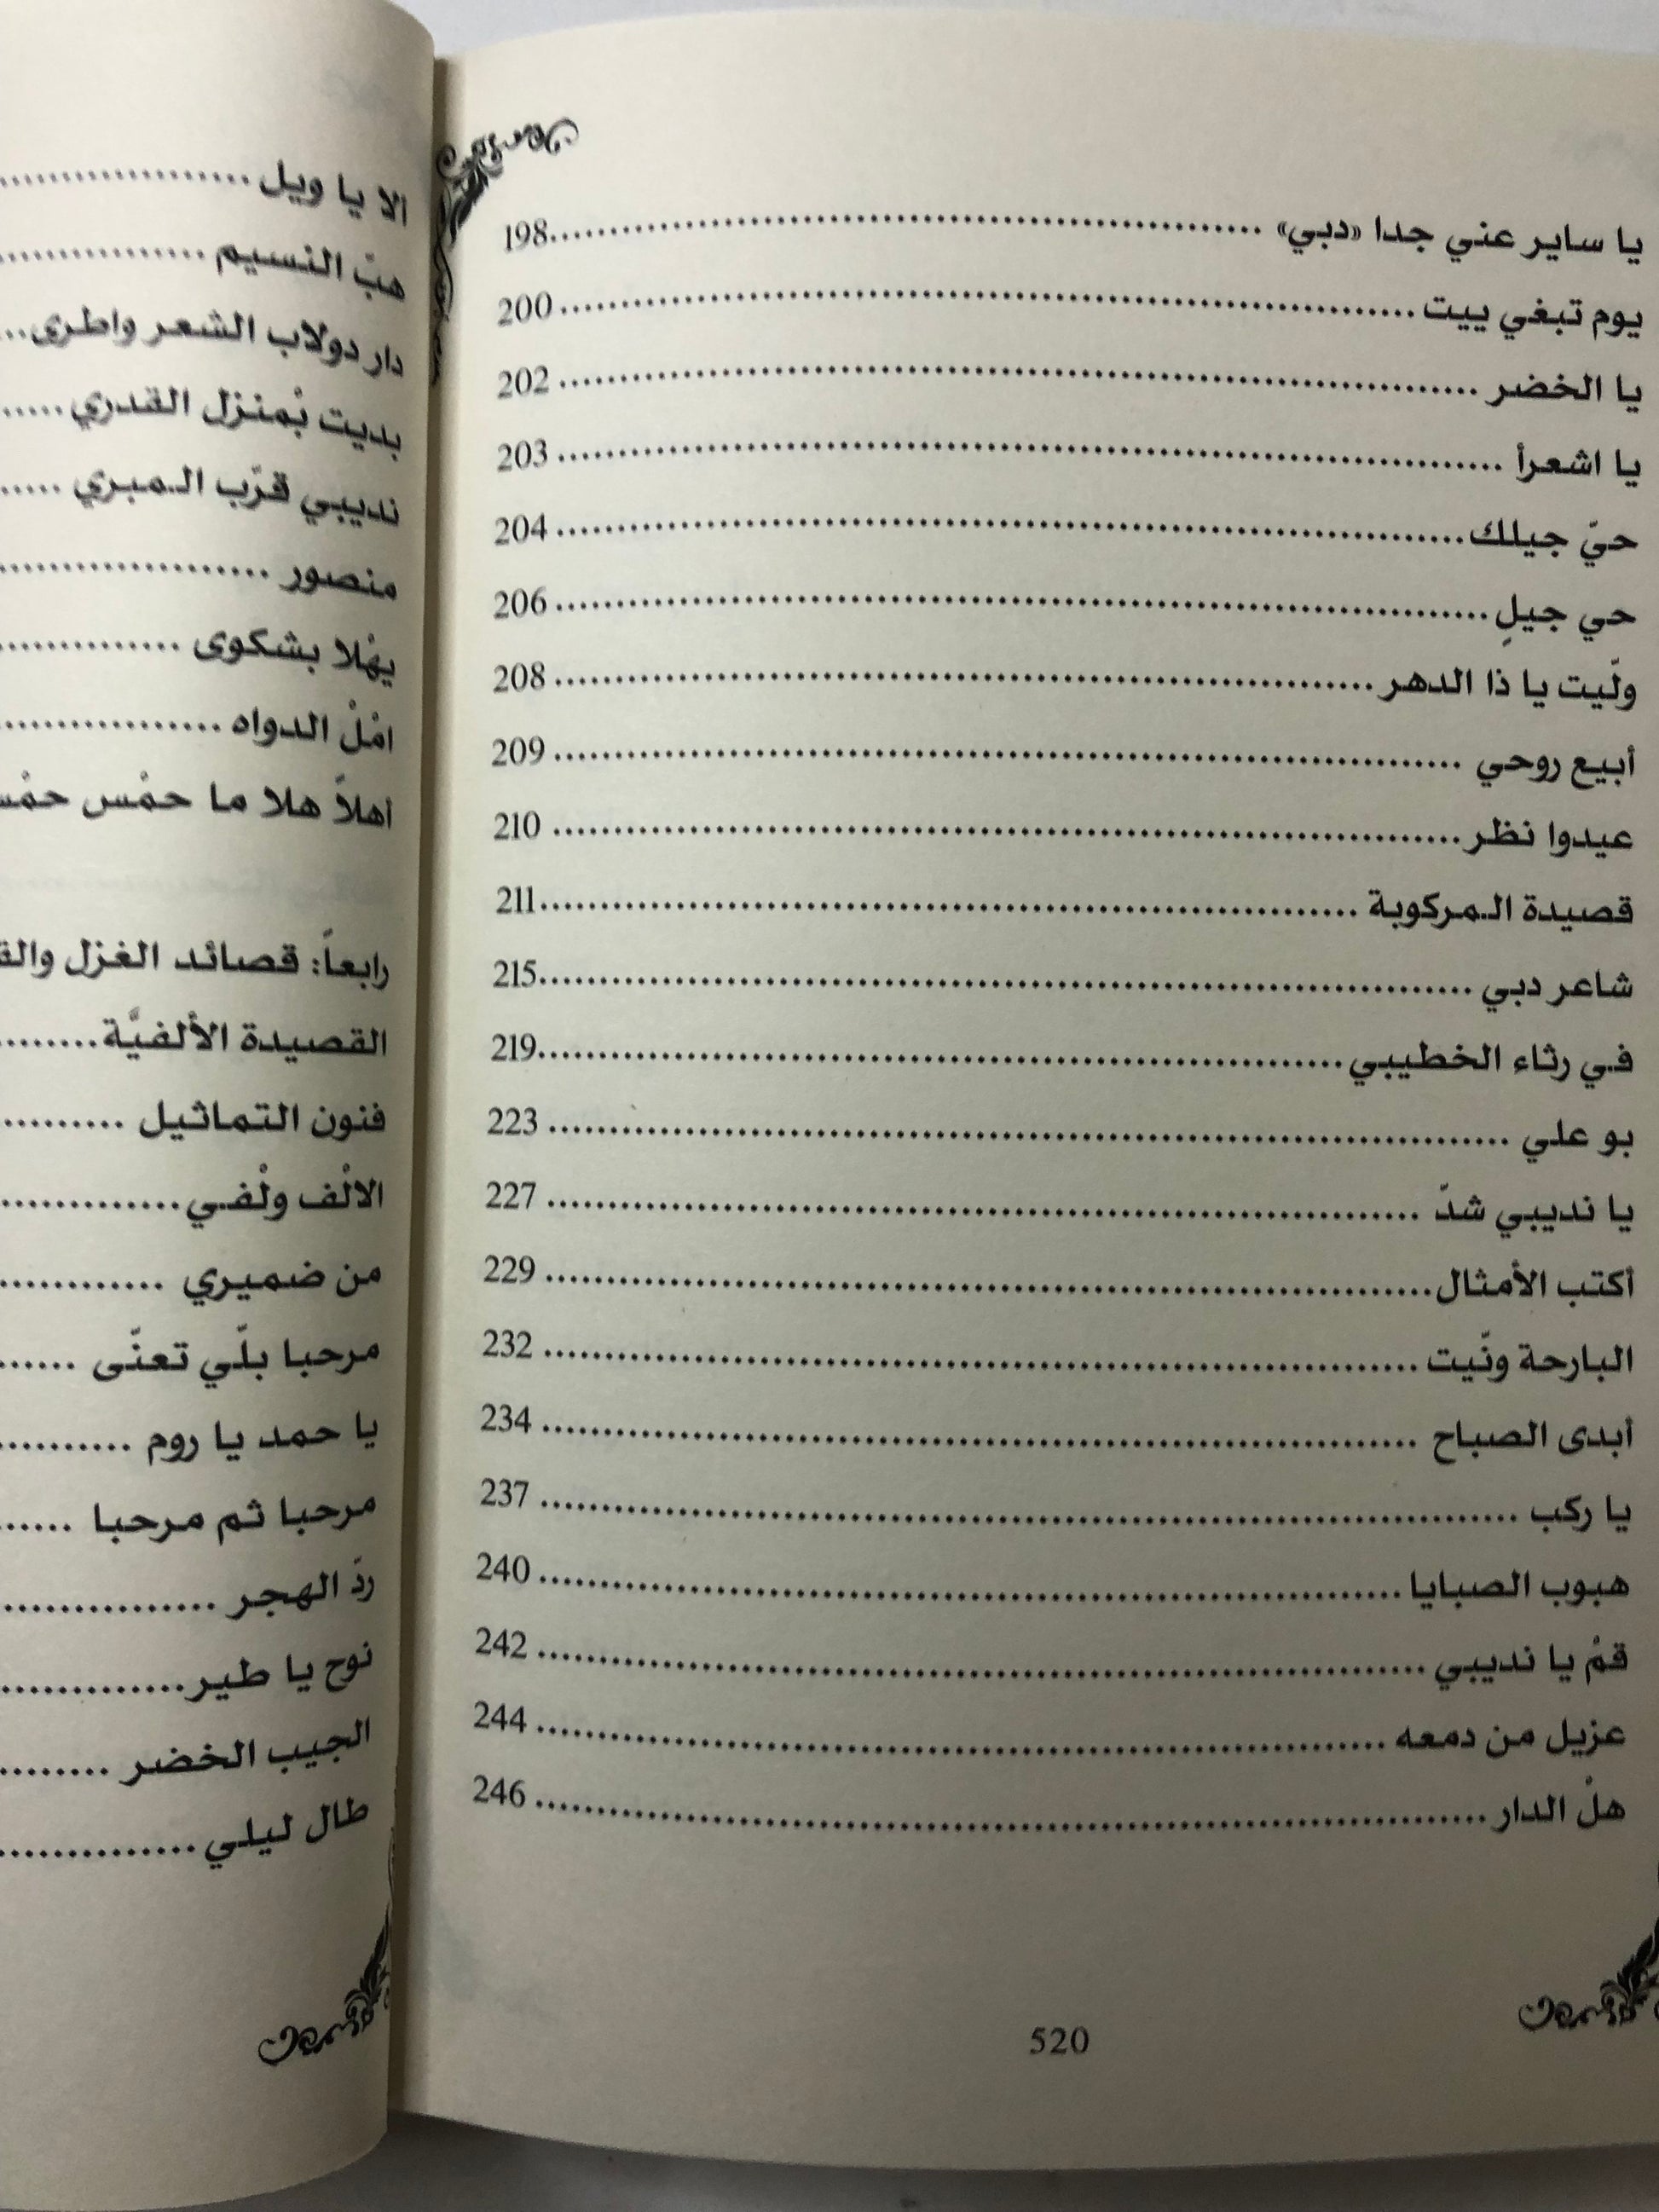 يا ساير عني جدا «دبي» ........ 198
يوم تبغي ييت ........ 200
يا الخضر ........ 202
يا اشعرأ ........ 203
حيّ جيلك ........ 204
حي جيلٍ ........ 206
ولّيت يا ذا الدهر ........ 208
أبيع روحي ........ 209
عيدوا نظر ........ 210
قصيدة المركوبة ........ 211
شاعر دبي ........ 215
في رثاء الخطيبي ........ 219
بو علي ........ 223
يا نديبي شدّ ........ 227
أكتب الأمثال ........ 229
البارحة ونّيت ........ 232
أبدى الصباح ........ 234
يا ركب ........ 237
هبوب الصبايا ........ 240
قمْ يا نديبي ........ 242
عزيل من دمعه ........ 244
هلْ الدار ........ 246
520
الا يا ويل ........
هبّ النسيم ........
دار دولاب الشعر واطرى ........
بديت بْمنزل القدري ........
نديبي قرّب المبري ........
منصور ........
يهْلا بشكوى ........
امْلْ الدواه ........
اهلاً هلا ما حمْس
رابعاً: قصائد الغزل
القصيدة الألفيَّة ........
فنون التماثيل ........
الالْف ولْفي ........
من ضميري ........
مرحبا بلّي تعنّى ........
يا حمد يا روم ........
مرحبا ثم مرحبا ........
ردّ الهجر ........
نوح يا طير ........
الجيب الخضر ........
طال ليلي ........